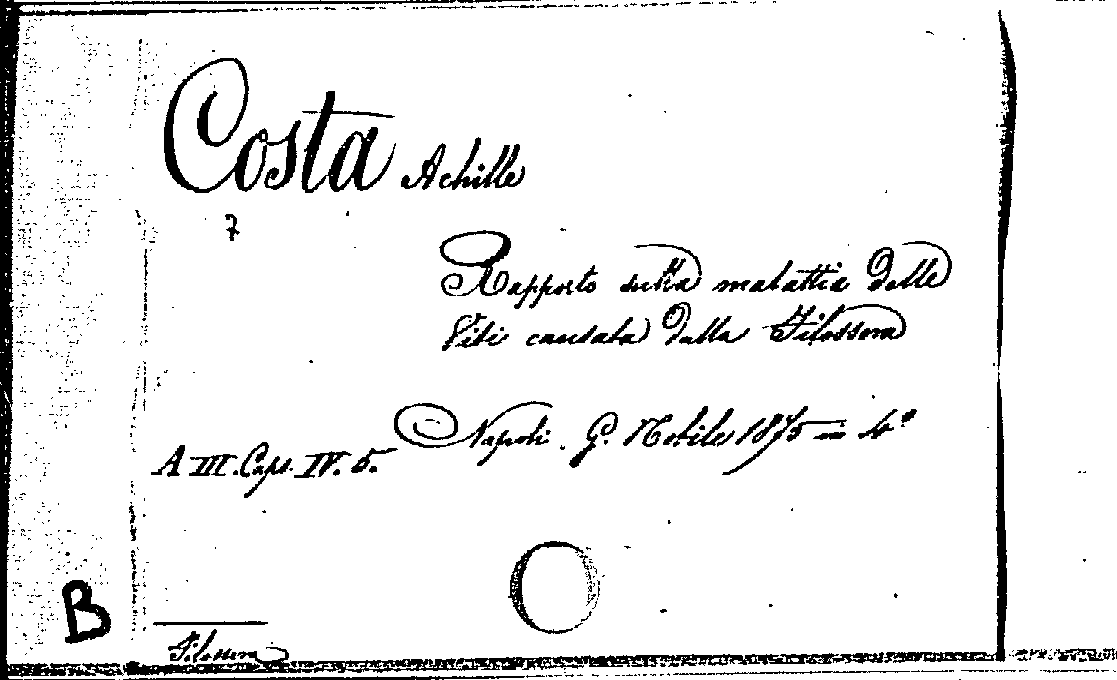 Costa Achille
7
Rapporto sulla malattia delle
Viti causata dalla Filossera
Napoli. G. Nobile 1875 in 4°
A III. Caps. IV. 5.
B
Filossera